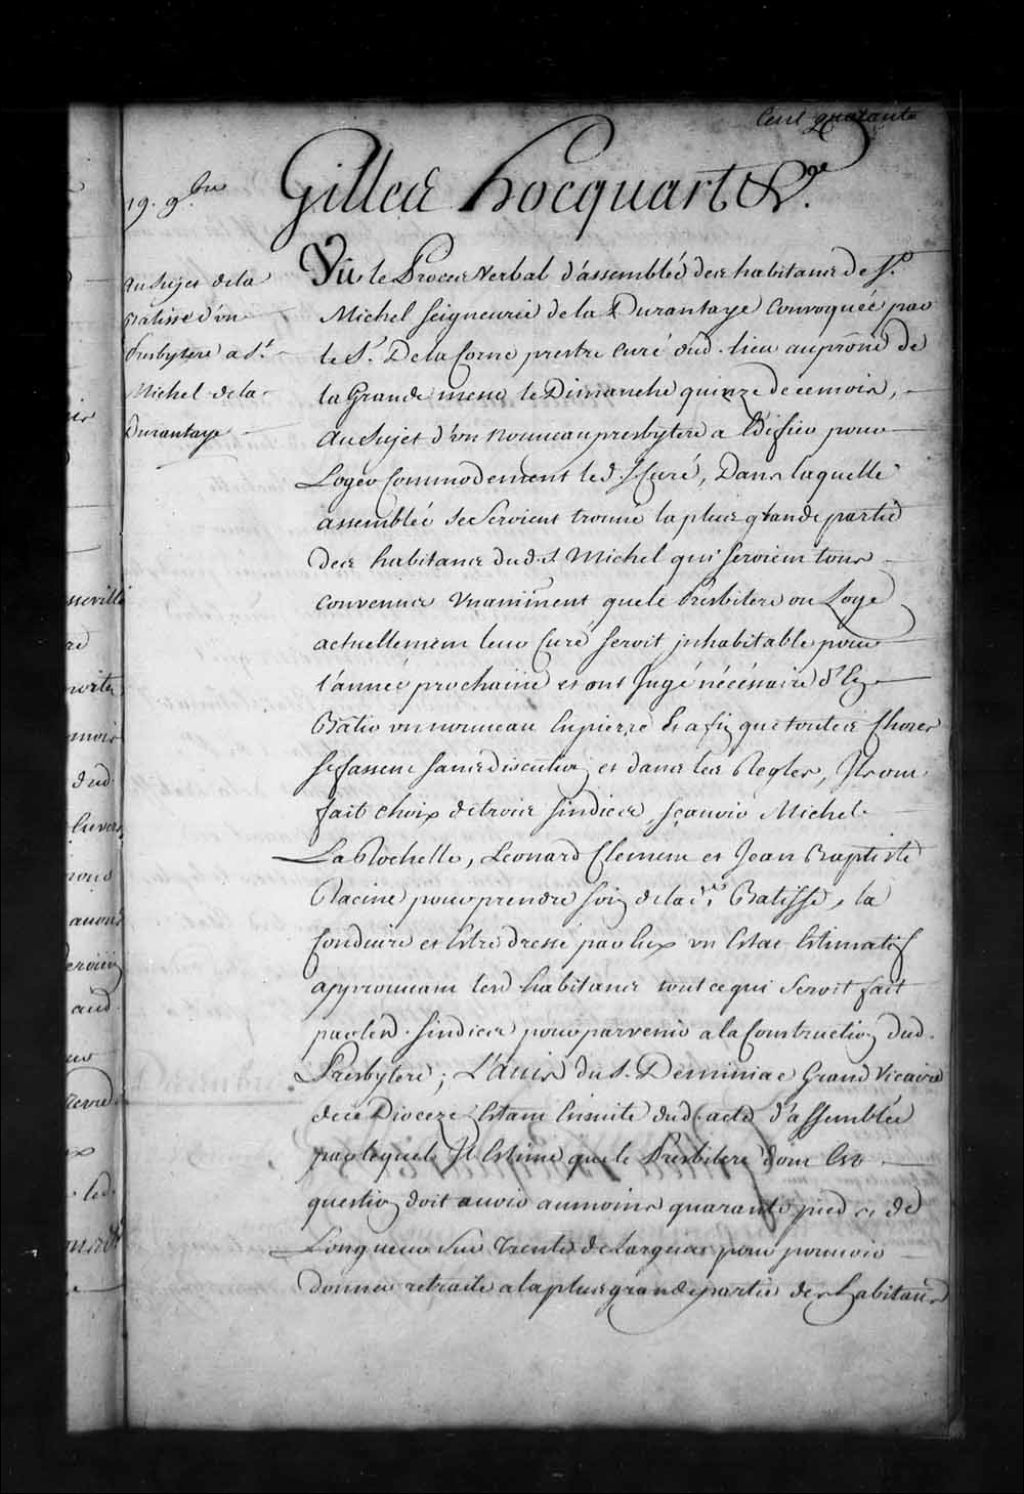 Cent quarante
Gilles hocquart &c.ge
19. 9.bre
Au Sujet dela
Batisse d'vn
Presbytere a S.t
Michel dela
Durantaye
Vû le Procez verbal d'assemblée des habitans de S.t
Michel Seigneurie de la Durantaye Convoquée par
le S.r De la Corne prestre Curé dud. lieu au prone de
la Grande messe le Dimanche quinze de ce mois,
Au Sujet d'vn Nouveau presbytere a Edifier pour
Loger Commodement led. S. Curé, Dans laquelle
assemblée se Seroient trouvé la plus grande partie
des habitans dud. S.t Michel qui seroient tous
convenus vnanimment que le Presbitere ou Loge
actuellement leur Curé seroit jnhabitable pour
l'année prochaine et ont Jugé nécéssaire d'En
Bâtir vn nouveau En pierre Et afin que toutes Choses
se fassent sans discution et dans les Regles, Ils ont
fait choix de trois sindics, sçauoir Michel
La Rochelle, Leonard Clement et Jean Baptiste
Racine pour prendre soin de lad.e Batisse, la
Conduire et Estre dressé par Eux vn Estat Estimatif
approuvant lesd. habitans tout ce qui Seroit fait
par lesd. sindics pour parvenir a la Construction dud.
Presbytere; L'Auis du S. Deminiac Grand Vicaire
de ce Dioceze Estant Ensuite dud. acte d'assemblée
par lequel Il Estime que le Presbitere dont Est
question doit auoir au moins quarante pieds de
Longueur Sur Trente de largeur pour pouuoir
donner retraite a la plus grande partie des habitans